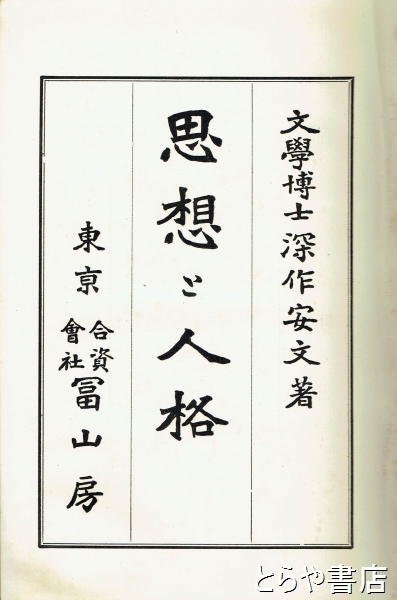 文學博士深作安文著
思想と人格
東京 合資會社 冨山房
とらや書店